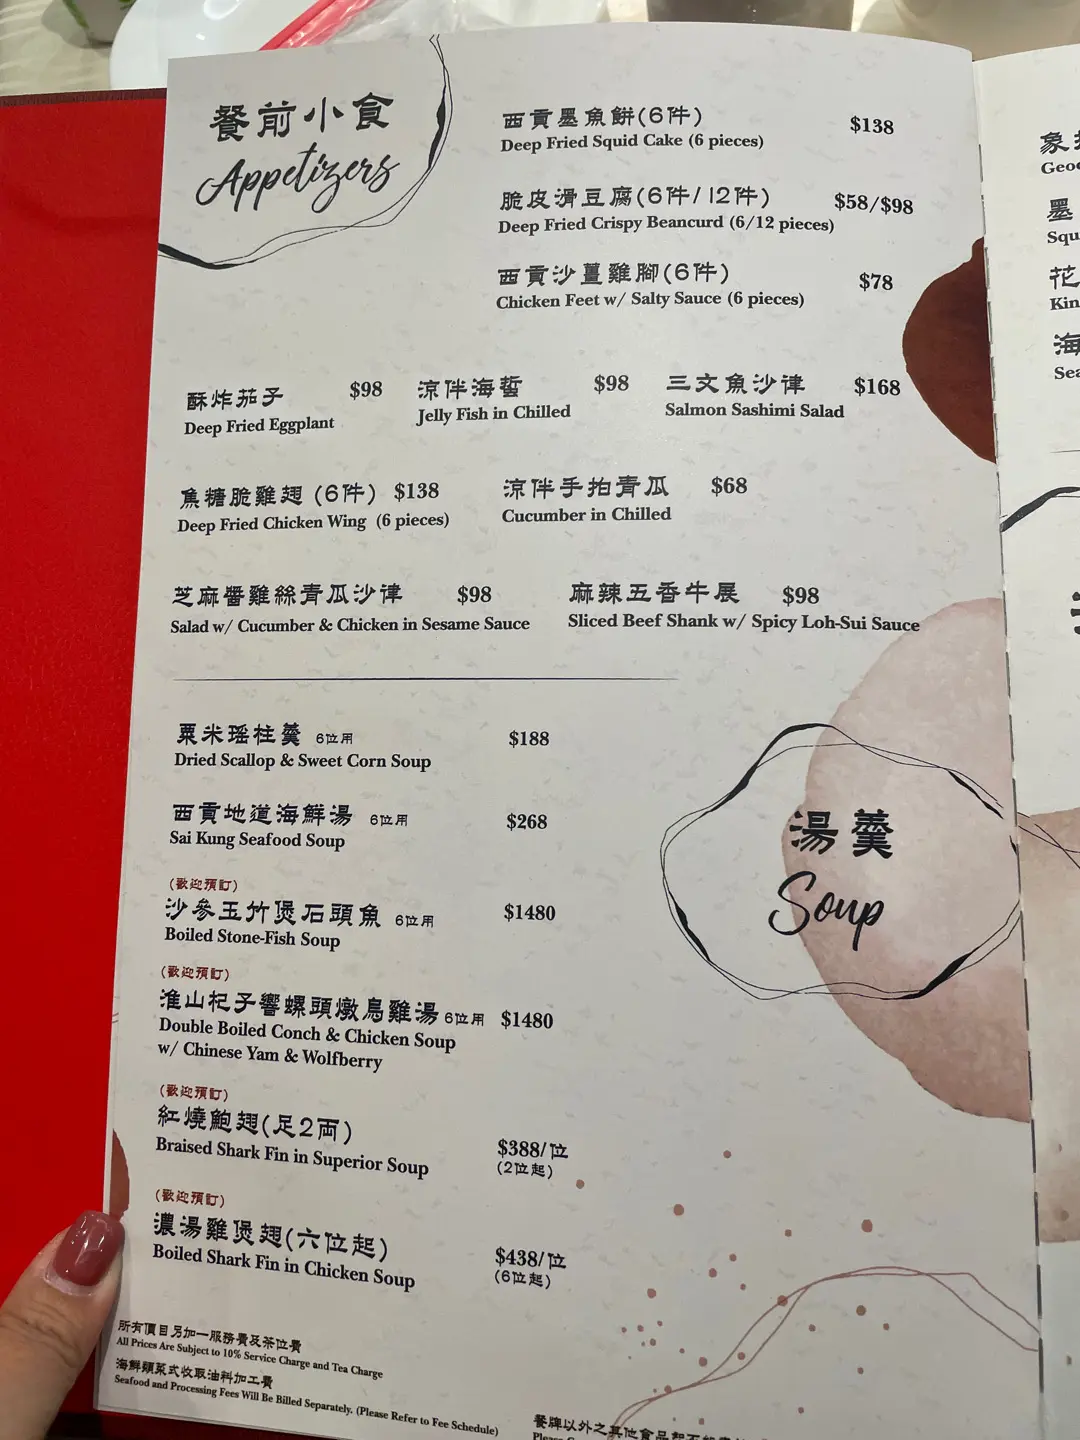 餐前小食
Appetizers
西貢墨魚餅(6件)
$138
Deep Fried Squid Cake (6 pieces)
脆皮滑豆腐(6件/12件)
$58/$98
Deep Fried Crispy Beancurd (6/12 pieces)
西貢沙薑雞腳(6件)
$78
Chicken Feet w/ Salty Sauce (6 pieces)
酥炸茄子 $98
Deep Fried Eggplant
涼伴海蜇 $98
Jelly Fish in Chilled
三文魚沙律 $168
Salmon Sashimi Salad
焦糖脆雞翅 (6件) $138
Deep Fried Chicken Wing (6 pieces)
涼伴手拍青瓜 $68
Cucumber in Chilled
芝麻醬雞絲青瓜沙律 $98
Salad w/ Cucumber & Chicken in Sesame Sauce
麻辣五香牛展 $98
Sliced Beef Shank w/ Spicy Loh-Sui Sauce
湯羹
Soup
粟米瑤柱羹 6位用 $188
Dried Scallop & Sweet Corn Soup
西貢地道海鮮湯 6位用 $268
Sai Kung Seafood Soup
(歡迎預訂)
沙參玉竹煲石頭魚 6位用 $1480
Boiled Stone-Fish Soup
(歡迎預訂)
淮山杞子響螺頭燉烏雞湯 6位用 $1480
Double Boiled Conch & Chicken Soup
w/ Chinese Yam & Wolfberry
(歡迎預訂)
紅燒鮑翅(足2両)
$388/位
Braised Shark Fin in Superior Soup
(2位起)
(歡迎預訂)
濃湯雞煲翅(六位起)
$438/位
Boiled Shark Fin in Chicken Soup
(6位起)
所有價目另加一服務費及茶位費
All Prices Are Subject to 10% Service Charge and Tea Charge
海鮮類菜式收取油料加工費
Seafood and Processing Fees Will Be Billed Separately. (Please Refer to Fee Schedule)
餐牌以外之其他食品
Please
象
墨
Squ
花
Kin
海
Sea